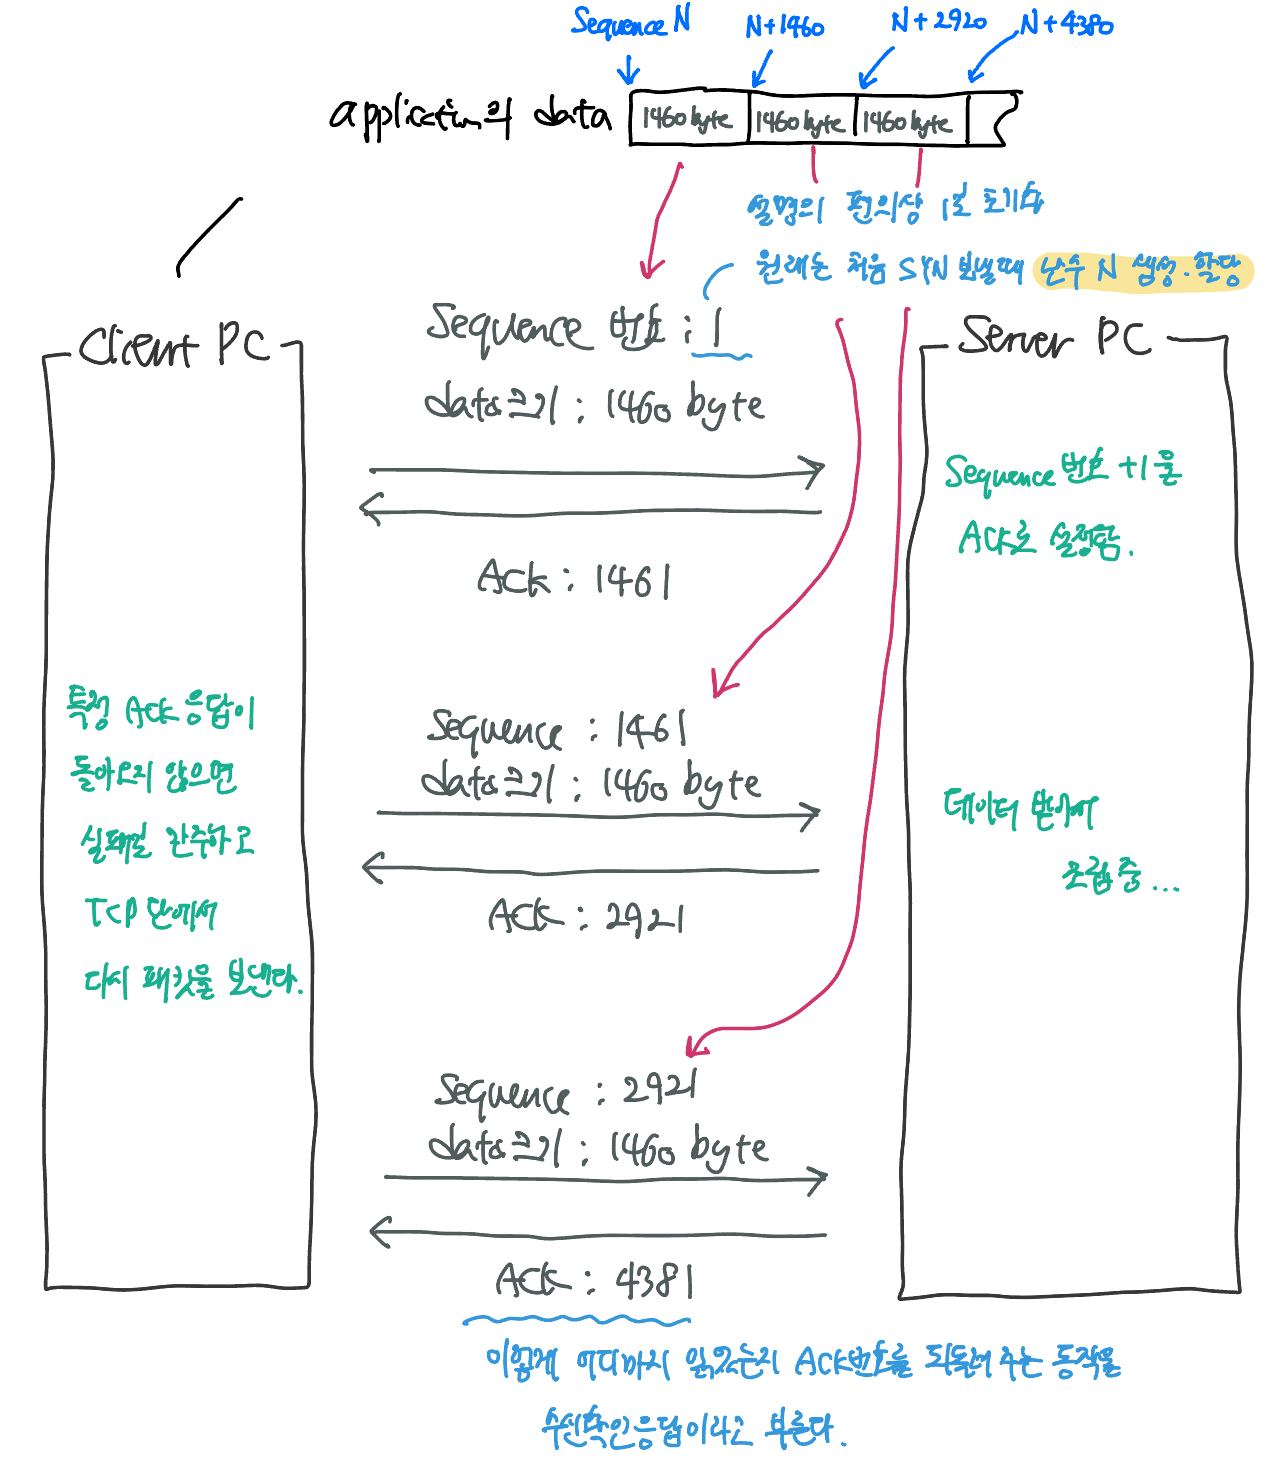 Sequence N
N+1460
N+2920
N+4380
application의 data
1460 byte
1460 byte
1460 byte
설명의 편의상 1로 초기화
원래는 처음 SYN 보낼때 난수 N 생성.할당
Client PC
Sequence 번호 : 1
Server PC
data크기 : 1460 byte
Sequence 번호 +1을
ACK로 설정함.
Ack : 1461
특정 ACK 응답이
돌아오지 않으면
실패로 간주하고
TCP 단에서
다시 패킷을 보낸다.
Sequence : 1461
data크기 : 1460 byte
데이터 받아서
조립 중...
ACK : 2921
Sequence : 2921
data크기 : 1460 byte
ACK : 4381
이렇게 어디까지 읽었는지 ACK번호를 되돌려 주는 동작을
수신확인응답이라고 부른다.